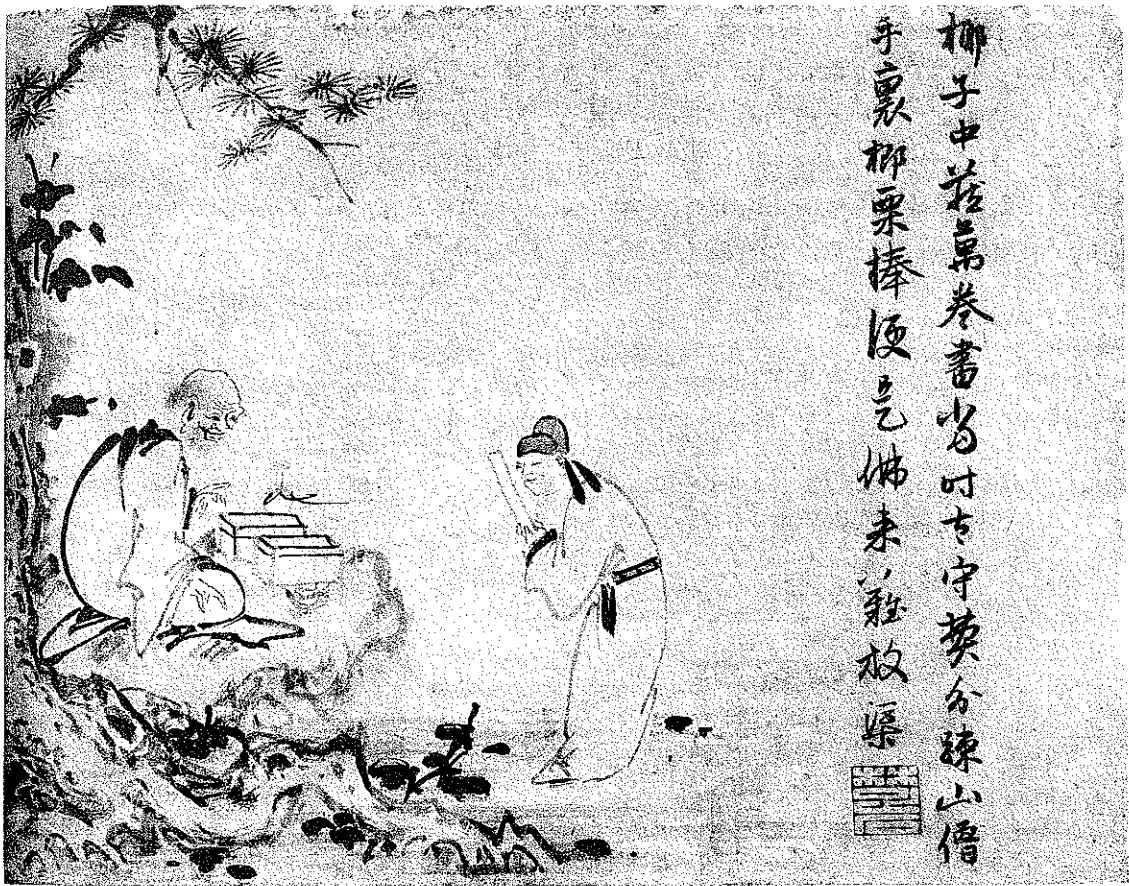 椰子中藏萬卷書當時太守費分疎山僧
手裏楖栗棒便是佛来難放渠